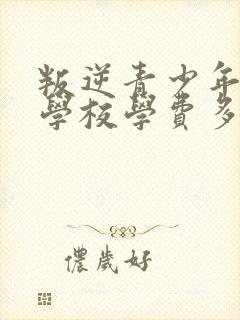 叛逆青少年
學校學費多
儂歲好